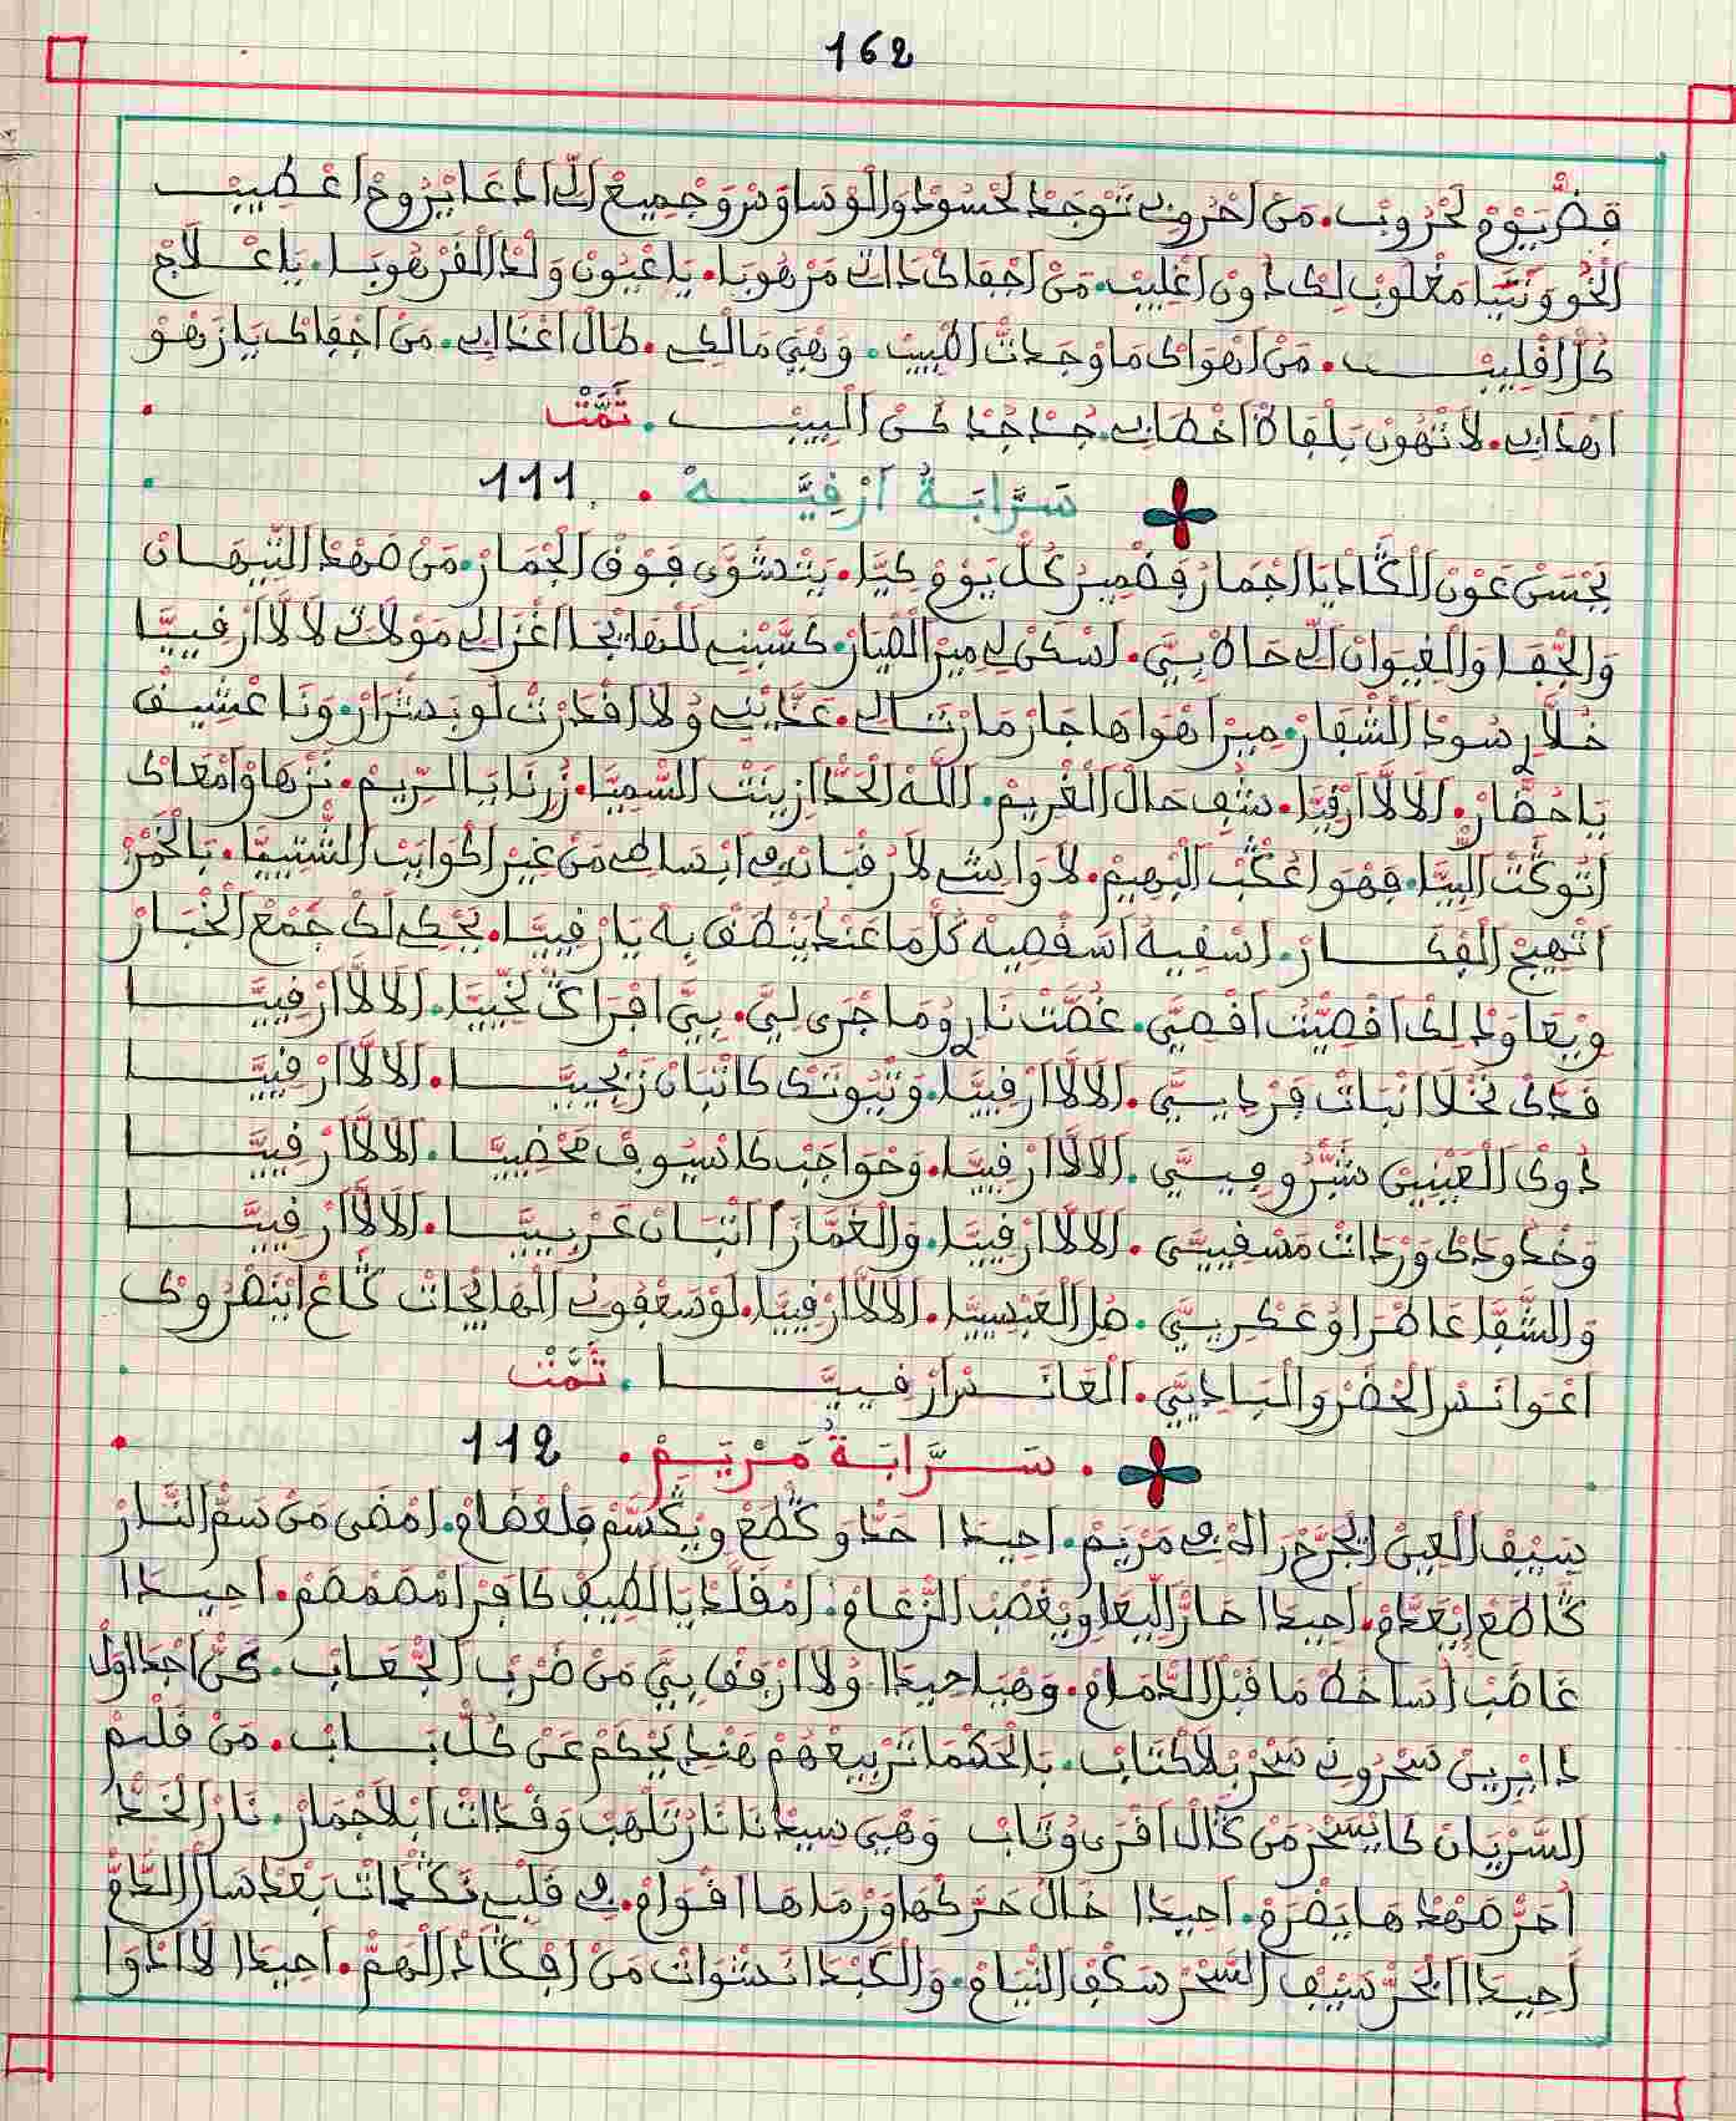 162
فضّ يَوْمْ لَحْرُوبْ. مَنْ احْرُوفِي تَوْجَدْ لَحْسُودْ وَالْوْسَاوَسْ وَجْمِيعْ الِّي ادْعَا يْرُوحْ اعْطِيبْ
الْخُو وَنْتِيَا مَغْلُوبْ لِكْ دُونْ اغْلِيبْ. مَنْ اجْفَاكْ ذَاتِي مَرْهُوبَا. يَا عْيُونْ وَلْدْ الْقَرْهُوبَا. يَا عْلَاجْ
كُلّْ اقْلِيبْ. مَنْ اهْوَاكْ مَا وْجَدْتْ اطْبِيبْ. وَهْيَ مَالْكِي. طَالْ اعْذَابِي. مَنْ اجْفَاكْ يَا زَهْوْ
اهْدَابِي. لَا تْهُونْ بَلْقَاهْ اخْطَابِي. جُدْ جُدْ كَنْ الْبِيبْ. تَمَّتْ
سَرَّابَةُ ارْقِيَّة. 111
يَحْسَنْ عَوْنْ الْكَادِيَا اجْمَارْ فَضْمِيرْ كُلّْ يَوْمْ كِيَّا. يَتْشَوَّى فَوْقْ الْجْمَارْ. مَنْ صَهْدْ التِّيهَانْ
وَالْجْفَا وَالْغِيوَانْ الِّي حَاطْ بِيَّ. اسْكَنْ لِي مِيرْ الضّْيَارْ. كَسَّبْنِي لَلْهَايْجَا اغْزَالِي مَوْلَاتِي لَالَّا ارْقِيَّا
خْلَّارِ سُودْ الشّْفَارْ. مِيرْ اهْوَاهَا جَارْ مَا رْثَالِي. عَذَّبْنِي وُلَا اقْدَرْتْ لُو بَشْرَارْ. وَنَا عْشِيقْ
يَا حُضَّارْ. الَالَّا ارْقِيَّا. شُفْ حَالْ الْغْرِيمْ. اللَّهْ الْحَدّْ ازِينَتْ السّْمِيَّا. زُرْنَا يَا الرِّيمْ. نَزْهَاوْ امْعَاكْ
اتْوَكَّتْ الْبِيَّا. فَهْوَ اعْكَبْ الْبْهِيمْ. لَا وَاشِي لَا رُقْبَانْ فِي ابْسَاطِي مَنْ غِيرْ اكْوَايَبْ الشّْتِيبِيَّا. بَالْخَمْرْ
اتْهِيجْ الْفْكَارْ. اسْقِيهْ اسْقْصِيهْ كُلّْ مَا عَنْدْ يَنْطَقْ بِهْ يَا رْقِيَّا. يَحْكِي لَكْ جَمْعْ الْخْبَارْ
وِيْعَاوَدْ لِكْ اقْصِيتْ اقْصِيَّ. غُصَّتْ نَارِ وُمَا جْرَى لِيَّ. بِيَّ افْرَاكْ تَحْيِيَّا. الَالَّا ارْقِيَّا
قَدَّكْ نَخْلَا انْبَاتْ فَرْدِيسِيَّ. الَالَّا ارْقِيَّا. وَتْيُوتَكْ كَا تْبَانْ زَنْجِيَّا. الَالَّا ارْقِيَّا
دُوكْ الْعَيْنِينْ شَرُّوفِيسِيَّ. الَالَّا ارْقِيَّا. وَحْوَاجَبْ كَا سْيُوفْ مَحْضِيَّا. الَالَّا ارْقِيَّا
وَخْدُودَكْ وَرْدَاتْ مَسْقِيِّيَّ. الَالَّا ارْقِيَّا. وَالْغُمَّازَا اتْبَانْ عَرْبِيَّا. الَالَّا ارْقِيَّا
وَالشّْفَّا عَاطْرَا وُعَكْرِيَّ. صَلْ الْعَبْسِيَّا. الَالَّا ارْقِيَّا. لَوْ سَعْفُونِي الْهَايْجَاتْ كَاعْ انْتَضْرُوكْ
اعْوَانَسْ الْحْضَرْ وَالْبَادِيَّ. الْعَانَسْ ارْقِيَّا. تَمَّتْ
سَرَّابَةُ مَرْيَمْ. 112
سَيْفْ الْعِينْ الْجَرَّحْ رَاهْ فِي مَرْيَمْ. احِيدَا حَدُّو كَطَعْ وِيكَسَّمْ فَلْعْضَامْ. امْضَى مَنْ سَمّْ النَّارْ
كَاطَعْ ابْعَدَّمْ. احِيدَا حَازْ الْبْعَا وِيغَصْبْ الزّْعَامْ. امْقَلَّدْ يَا لَطِيفْ كَافَرْ امْصَمْصَمْ. احِيدَا
غَاضَبْ اسَاخَطْ مَا قْبَلْ الدّْمَامْ. وَهْيَا حِيدَا وُلَا ارْفَقْ بِيَّ مَنْ ضَرْبْ الْجْعَابْ. عَنْ اجْدَاوَلْ
دَا ابْرِينْ سَحْرُونِي سَحْرْ بْلَا كْتَابْ. بَالْحَكْمَا تَرْبِيعْهُمْ هَنْدِ يَحْكَمْ عَنْ كُلّْ بَابْ. مَنْ قْلَمْ
السَّرْيَانْ كَا يَسْحَرْ مَنْ كَالْ اقْرَى وُتَابْ وَهْيَ سِيدْنَا نَارْ تَلْهَبْ وَقْدَاتْ ابْلَا جْمَارْ. نَارْ الْخَدّْ
احَرّْ صَهْدْهَا يَضْرَمْ. احِيدَا خَالْ حَرَّكْهَا وَرْمَاهَا اقْوَامْ. فِي قَلْبِي تَكْدَاتْ بَعْدْ سَالْ الدَّمّْ
احِيدَا الْحَرّْ سَيْفْ السّْحَرْ سَكْفْ النْيَامْ. وَالْكَبْدَا نَشْوَاتْ مَنْ افْكَادْ الْهَمّْ. احِيدَا لَا ادْوَا